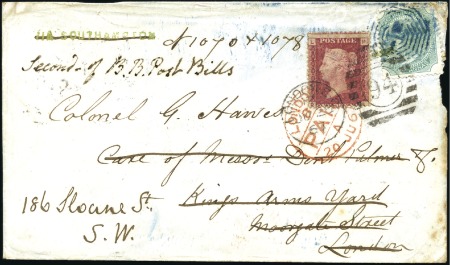 VIA SOUTHAMPTON
N 1070 + 1078
Second of B.B. Post Bills
POSTAGE
94
LONDON
PAID
Colonel G. Hawes
Care of Messrs Dent Palmer &
Kings Arms Yard
Moorgate Street
London
186 Sloane St.
S. W.